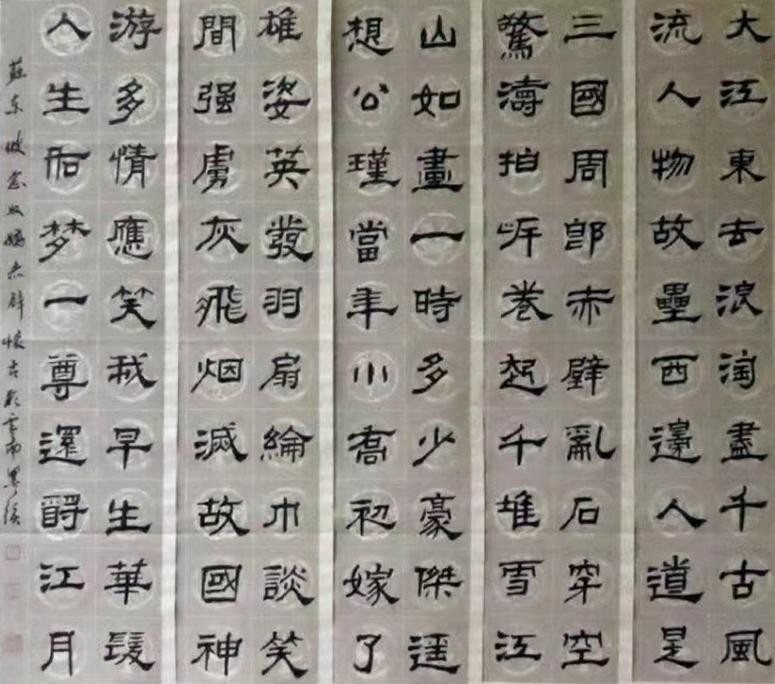 大江東去浪淘盡千古風
流人物故壘西邊人道是
三國周郎赤壁亂石穿空
驚濤拍岸卷起千堆雪江
山如畫一時多少豪傑遥
想公瑾當年小喬初嫁了
雄姿英發羽扇綸巾談笑
間强虜灰飛烟滅故國神
游多情應笑我早生華髮
人生如梦一尊還酹江月
蘇東坡念奴嬌赤壁懷古